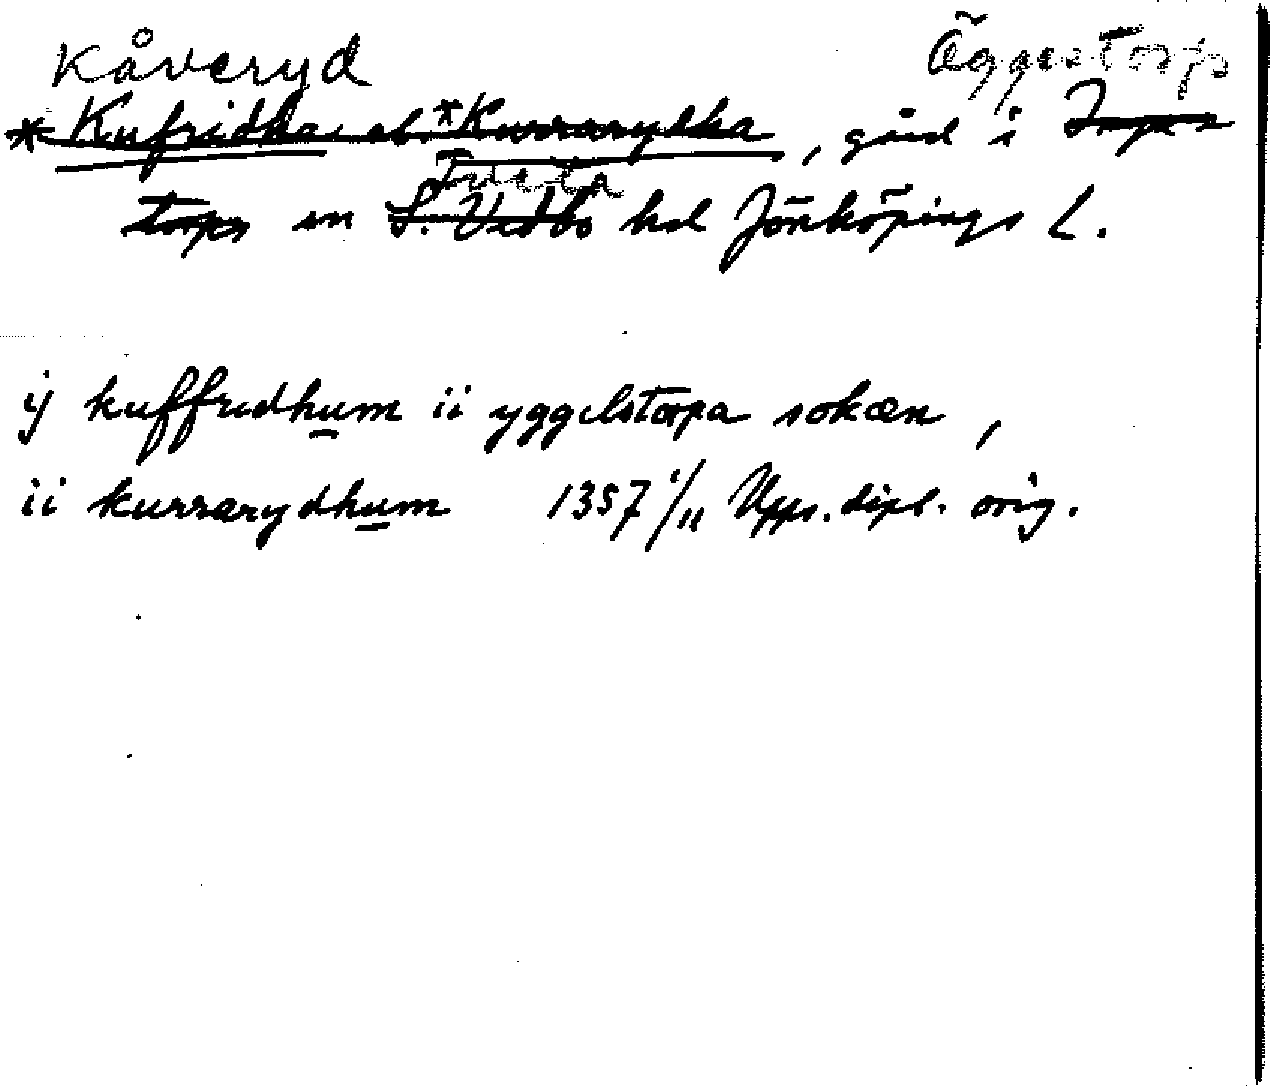 Kåveryd Äggestorps
*Kufridha el. *Kurrarydha, gård i Ingatorps
Tveta
torps sn S. Vedbo hd Jönköpings L.
ij kuffridhum ii yggelstorpa sokæn,
ii kurrarydhum 1357 1/11 Upps. dipl. orig.